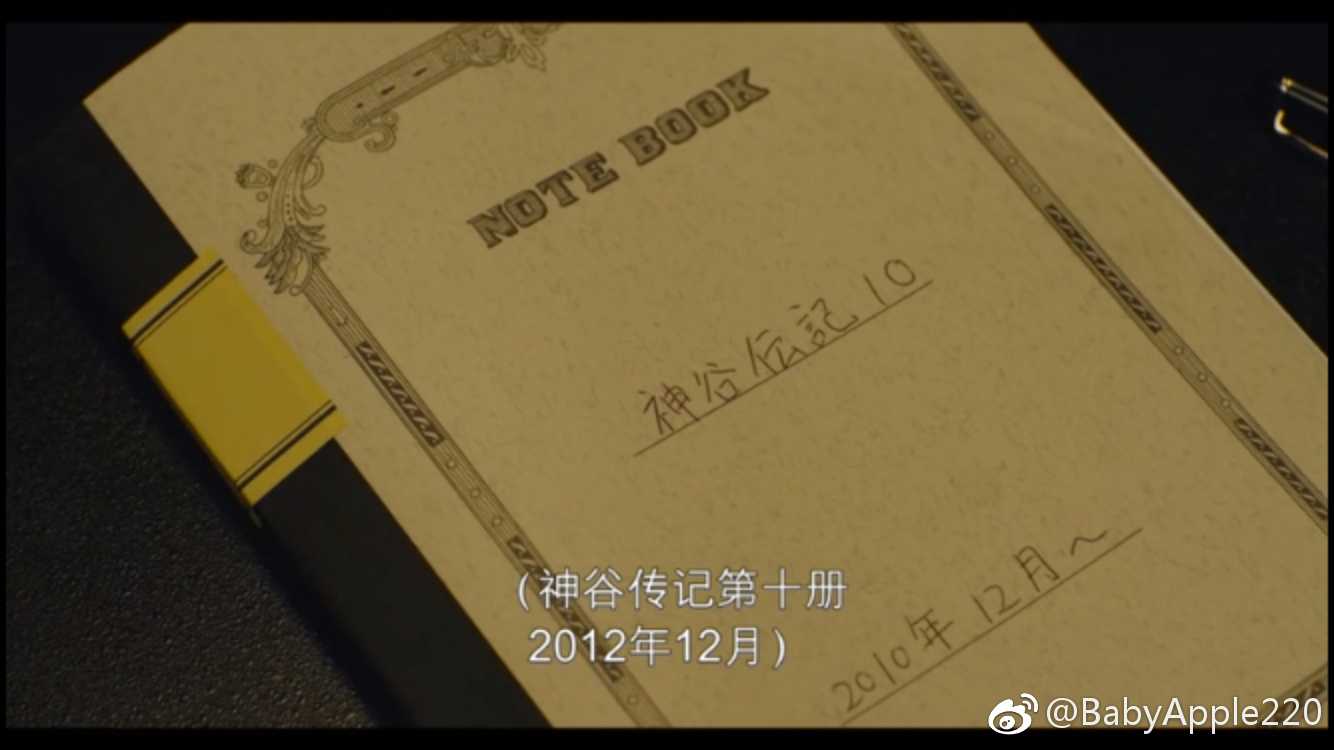 NOTE BOOK
神谷伝記 10
2010年 12月～
(神谷传记第十册
2012年12月)
@BabyApple220